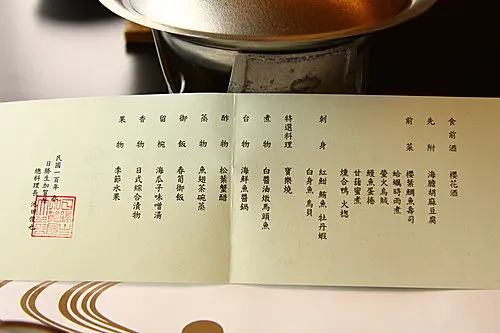 食前酒 櫻花酒
先附 海膽胡麻豆腐
前菜 櫻葉鯛魚壽司
蛤蠣時雨煮
螢火烏賊
鰻魚蛋捲
甘藷蜜煮
燻合鴨 火樬
刺身 紅魽 鮪魚 牡丹蝦
白身魚 烏貝
特選料理 寶樂燒
煮物 白醬油燉馬頭魚
台物 海鮮魚醬鍋
酢物 松葉蟹醋
蒸物 魚翅茶碗蒸
御飯 春筍御飯
留椀 海瓜子味噌湯
香物 日式綜合漬物
果物 季節水果
民國一百年
日勝生加賀
總料理長